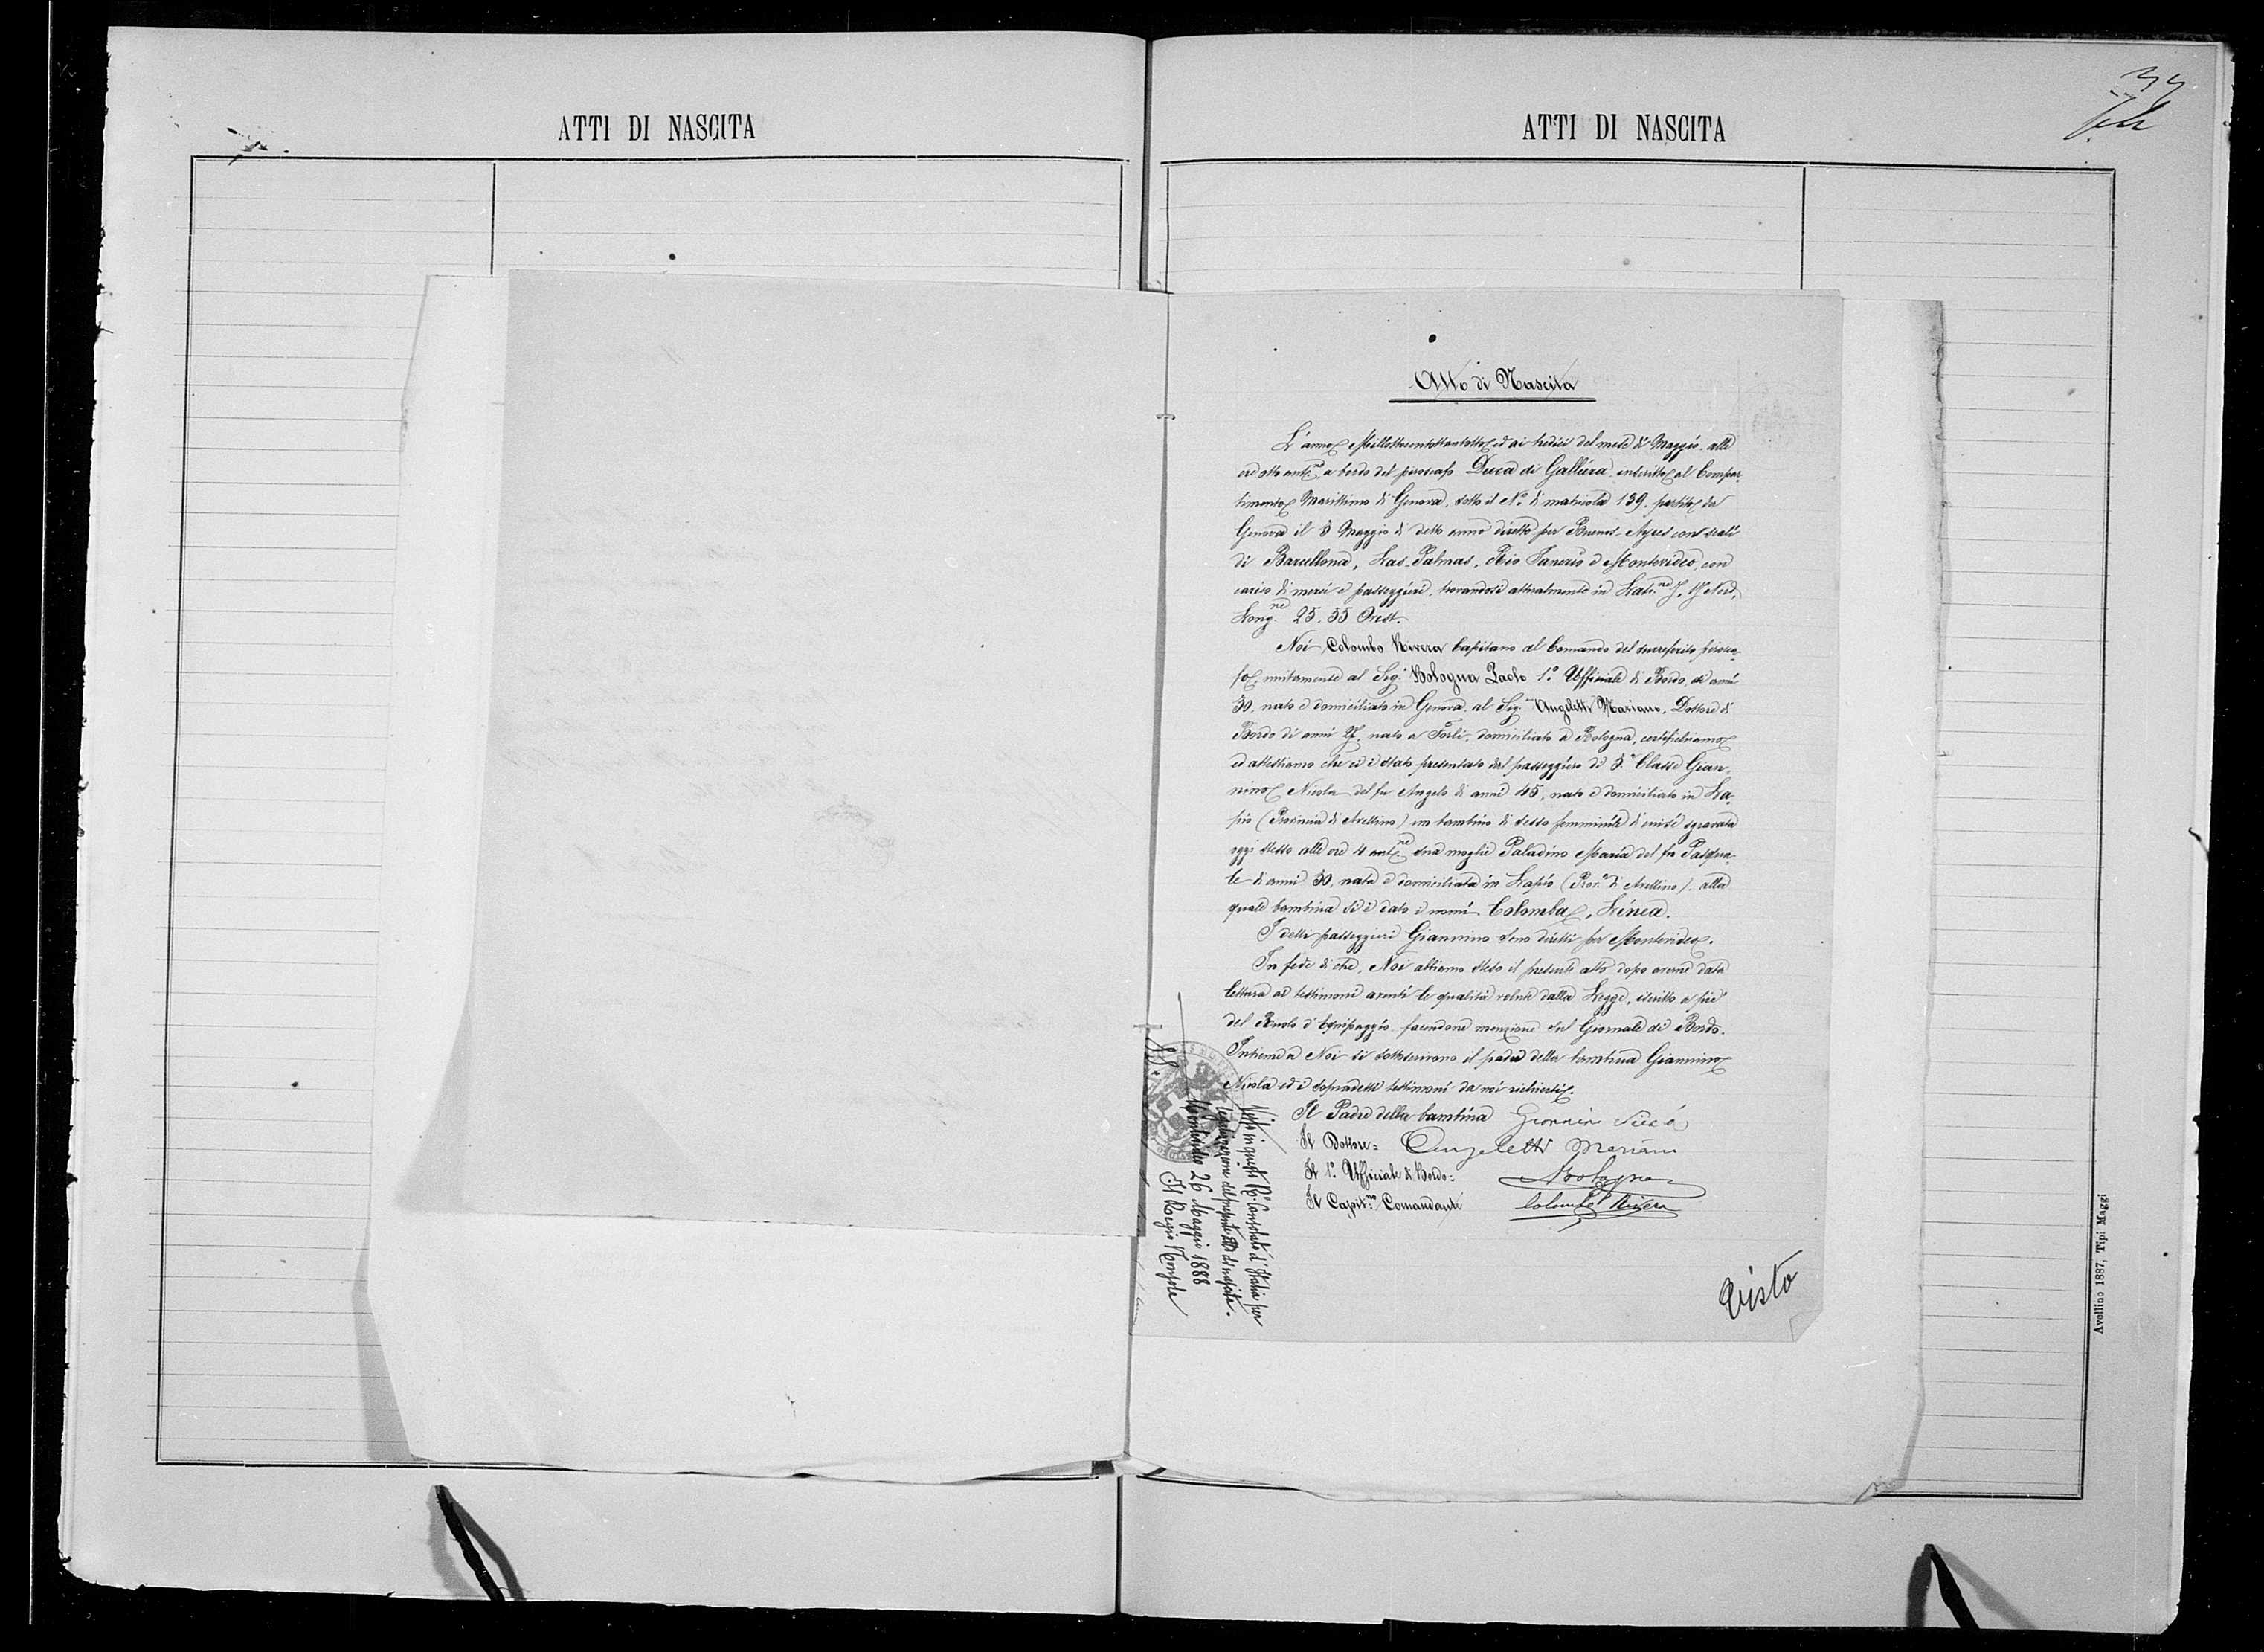 ATTI DI NASCITA
ATTI DI NASCITA
Atto di Nascita
L'anno Milleottocentottantotto ed ai tredici del mese di Maggio alle
ore otto antne a bordo del piroscafo Duca di Galliera inscritto al Compar-
timento Marittimo di Genova, sotto il No di matricola 139, partito da
Genova il 3 Maggio di detto anno diretto per Buenos-Ayres con scali
di Barcellona, Las-Palmas, Rio Janerio e Montevideo, con
carico di merci e passeggieri, trovandosi attualmente in Latne Nord,
Longne 25.55 Ovest.
Noi Colombo Rivera Capitano al Comando del surreferito pirosca-
fo, unitamente al Sig. Bologna Paolo 1o Ufficiale di Bordo, di anni
30, nato e domiciliato in Genova, al Sig. Angeletti Mariano, Dottore di
Bordo di anni 27, nato a Forlì, domiciliato a Bologna, certifichiamo
ed attestiamo che ci è stato presentato dal passeggiero di 3a Classe Gian-
nino Nicola del fu Angelo di anni 45, nato e domiciliato in La-
pio (Provincia di Avellino) un bambino di sesso femminile di cui si è sgravata
oggi stesso alle ore 4 antne sua moglie Paladino Maria del fu Pasqua-
le di anni 30, nata e domiciliata in Lapio (Prov.a di Avellino), alla
quale bambina si è dato i nomi Colomba, Linea.
I detti passeggieri Giannino sono diretti per Montevideo.
In fede di che, Noi abbiamo steso il presente atto dopo averne data
lettura ai testimoni aventi le qualità volute dalla Legge, iscritto a piè
del Ruolo d'Equipaggio facendone menzione sul Giornale di Bordo.
Insieme a Noi si sottoscrivono il padre della bambina Giannino
Nicola ed i sopradetti testimoni da noi richiesti.
Il Padre della bambina Giannini
Il Dottore = Angeletti Mariano
Il 1o Ufficiale di Bordo = Bologna
Il Capit.no Comandante Colombo Rivera
Visto in questo Ro Consolato d'Italia per
legalizzazione del presente atto di nascita.
Montevideo 26 Maggio 1888
Il Regio Console
Visto
Avellino 1887, Tipi Maggi